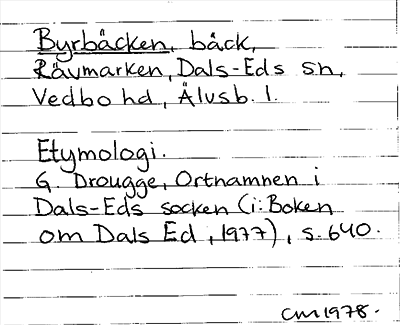 Byrbäcken, bäck,
Rävmarken, Dals-Eds sn,
Vedbo hd, Älvsb. l.
Etymologi.
G. Drougge, Ortnamnen i
Dals-Eds socken (i: Boken
om Dals Ed, 1977), s. 640.
CM 1978.